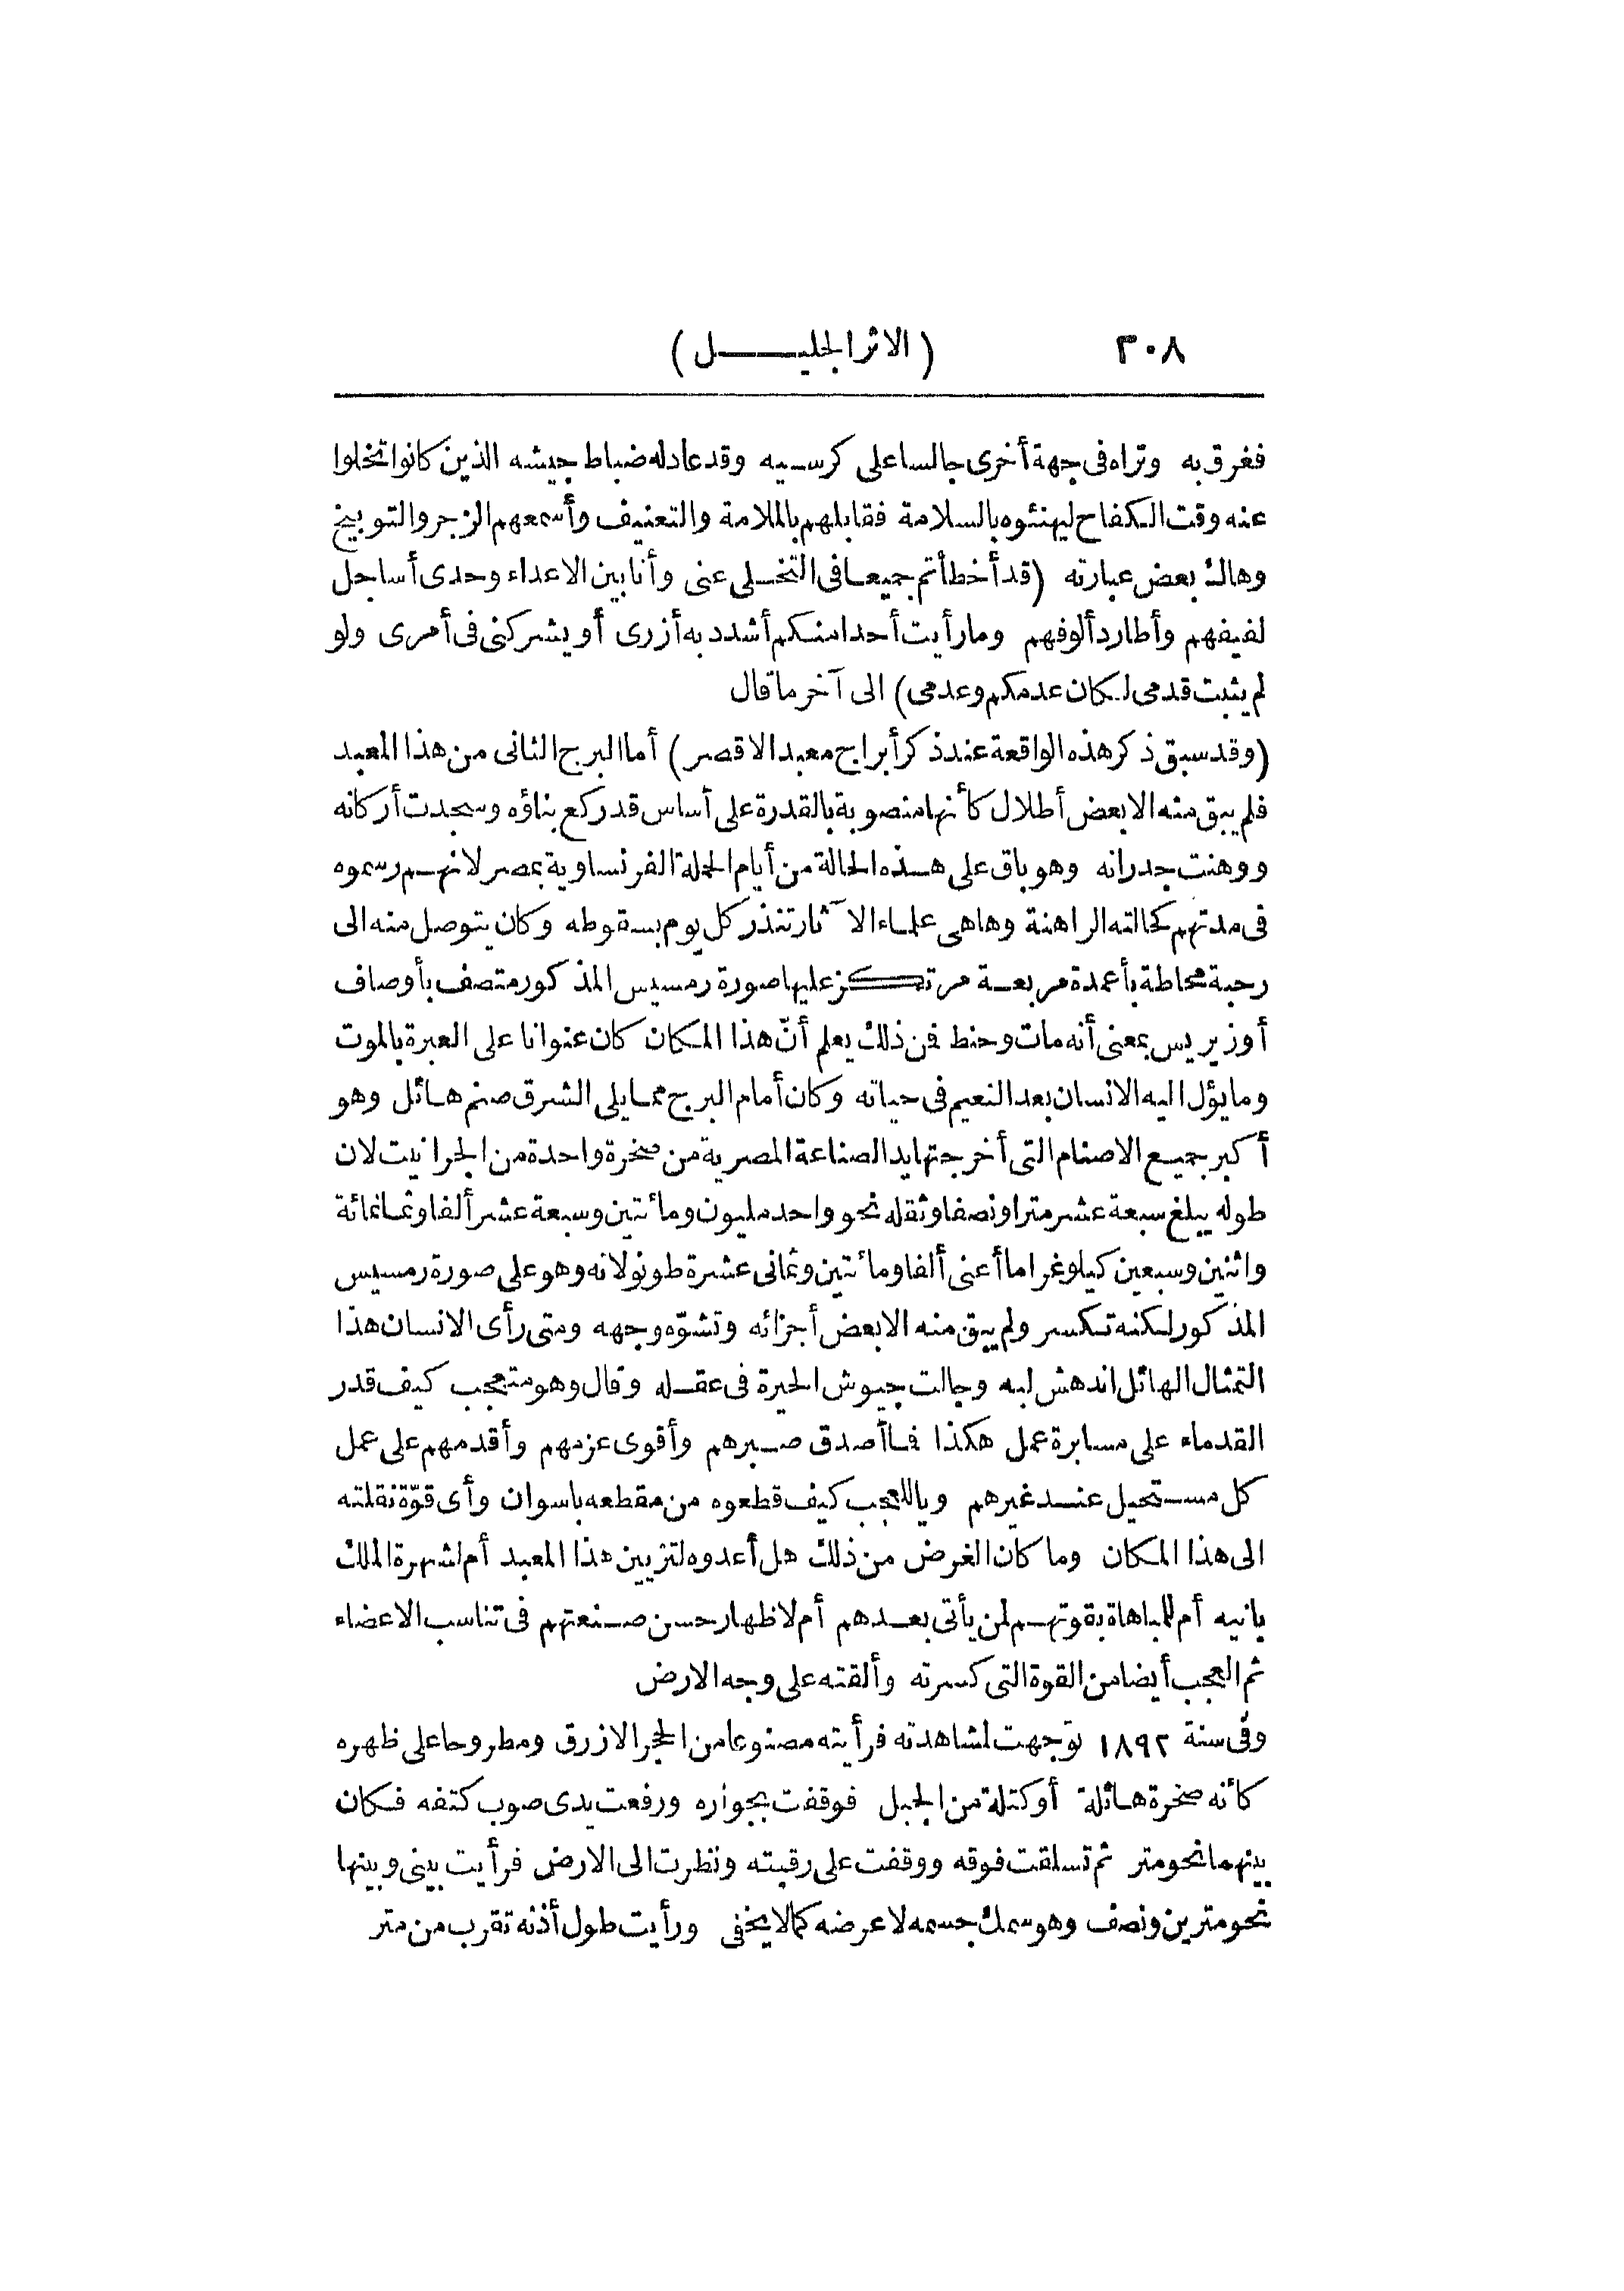 ٣٠٨ (الاثر الجليل)
فغرق به وتراه فى جهة أخرى جالسا على كرسيه وقد عادله ضباط جيشه الذين كانوا تخلوا
عنه وقت الكفاح ليهنئوه بالسلامة فقابلهم بالملامة والتعنيف وأسمعهم الزجر والتوبيخ
وهاك بعض عبارته (قد أخطأتم جميعا فى التخلى عنى وأنا بين الاعداء وحدى أساجل
لفيفهم وأطارد ألوفهم ومارأيت أحدا منكم أشدد به أزرى أو يشركنى فى أمرى ولو
لم يثبت قدمى لكان عدمكم وعدمى) الى آخر ما قال
(وقد سبق ذكر هذه الواقعة عند ذكر أبراج معبد الاقصر) أما البرج الثانى من هذا المعبد
فلم يبق منه الا بعض أطلال كأنها منصوبة بالقدرة على أساس قد ركع بناؤه وسجدت أركانه
ووهنت جدرانه وهو باق على هذه الحالة من أيام الحملة الفرنساوية بمصر لانهم رسموه
فى مدتهم كحالته الراهنة وهاهى علماء الآثار تنذر كل يوم بسقوطه وكان يتوصل منه الى
رحبة محاطة بأعمدة مربعة مرتكز عليها صورة رمسيس المذكور متصف بأوصاف
أوزيريس بمعنى أنه مات وحنط فمن ذلك يعلم أنّ هذا المكان كان عنوانا على العبرة بالموت
وما يؤل اليه الانسان بعد النعيم فى حياته وكان أمام البرج مما يلى الشرق صنم هائل وهو
أكبر جميع الاصنام التى أخرجتها يد الصناعة المصرية من صخرة واحدة من الجرانيت لان
طوله يبلغ سبعة عشر مترا ونصفا وثقله نحو واحد مليون ومائتين وسبعة عشر ألفا وثمانمائة
واثنين وسبعين كيلوغراما أعنى ألفا ومائتين وثمانى عشرة طونولاته وهو على صورة رمسيس
المذكور لكنه تكسر ولم يبق منه الا بعض أجزائه وتشوّه وجهه ومتى رأى الانسان هذا
التمثال الهائل اندهش لبه وجالت جيوش الحيرة فى عقله وقال وهو متعجب كيف قدر
القدماء على مسابرة عمل هكذا فما أصدق صبرهم وأقوى عزمهم وأقدمهم على عمل
كل مستحيل عند غيرهم وياللعجب كيف قطعوه من مقطعه باسوان وأى قوّة نقلته
الى هذا المكان وما كان الغرض من ذلك هل أعدوه لتزيين هذا المعبد أم لشهرة الملك
بانيه أم للمباهاة بقوتهم لمن يأتى بعدهم أم لاظهار حسن صنعتهم فى تناسب الاعضاء
ثم العجب أيضا من القوة التى كسرته وألقته على وجه الارض
وفى سنة ١٨٩٢ توجهت لمشاهدته فرأيته مصنوعا من الحجر الازرق ومطروحا على ظهره
كأنه صخرة هائلة أو كتلة من الجبل فوقفت بجواره ورفعت يدى صوب كتفه فكان
بينهما نحو متر ثم تسلقت فوقه ووقفت على رقبته ونظرت الى الارض فرأيت بينى وبينها
نحو مترين ونصف وهو سمك جسمه لا عرضه كما لا يخفى ورأيت طول أذنه تقرب من متر